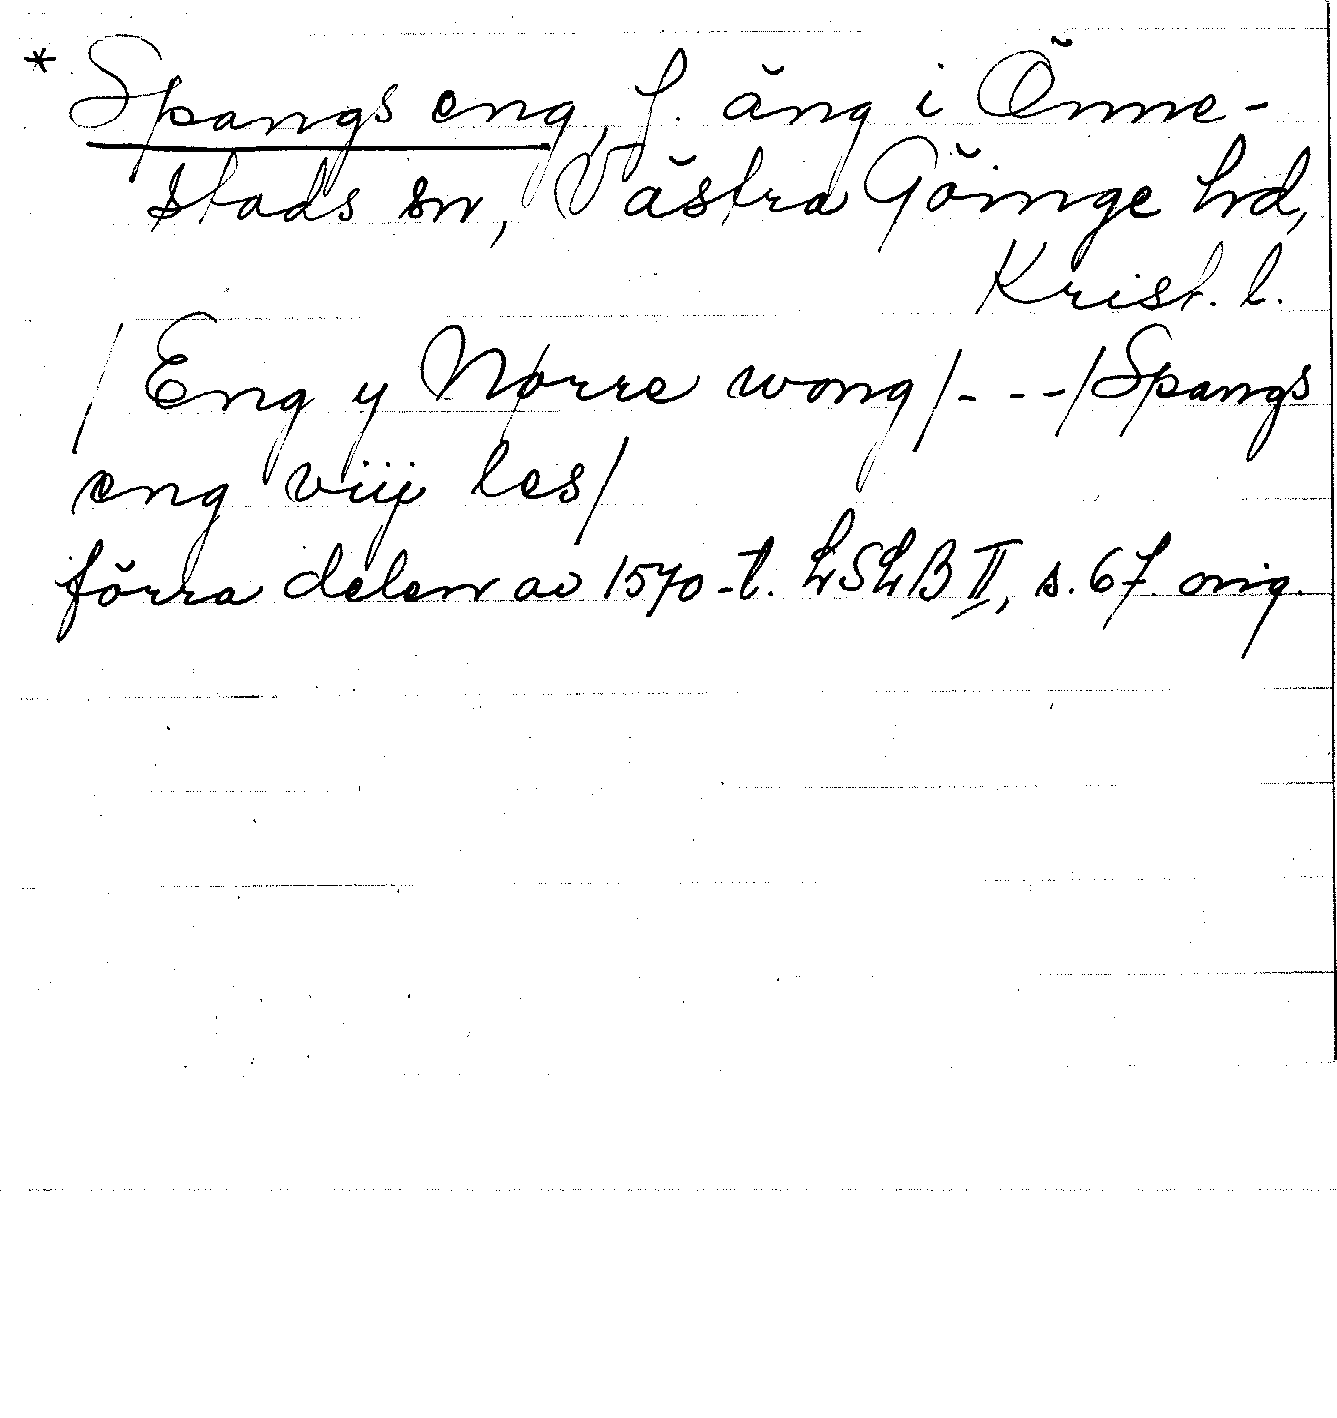 * Spangs eng, f. äng i Önne-
stads sn, Västra Göinge hd,
Krist. l.
/Eng y Nørre wong/---/Spangs
eng viij les/
förra delen av 1570-t. LSLB II, s. 67 orig.